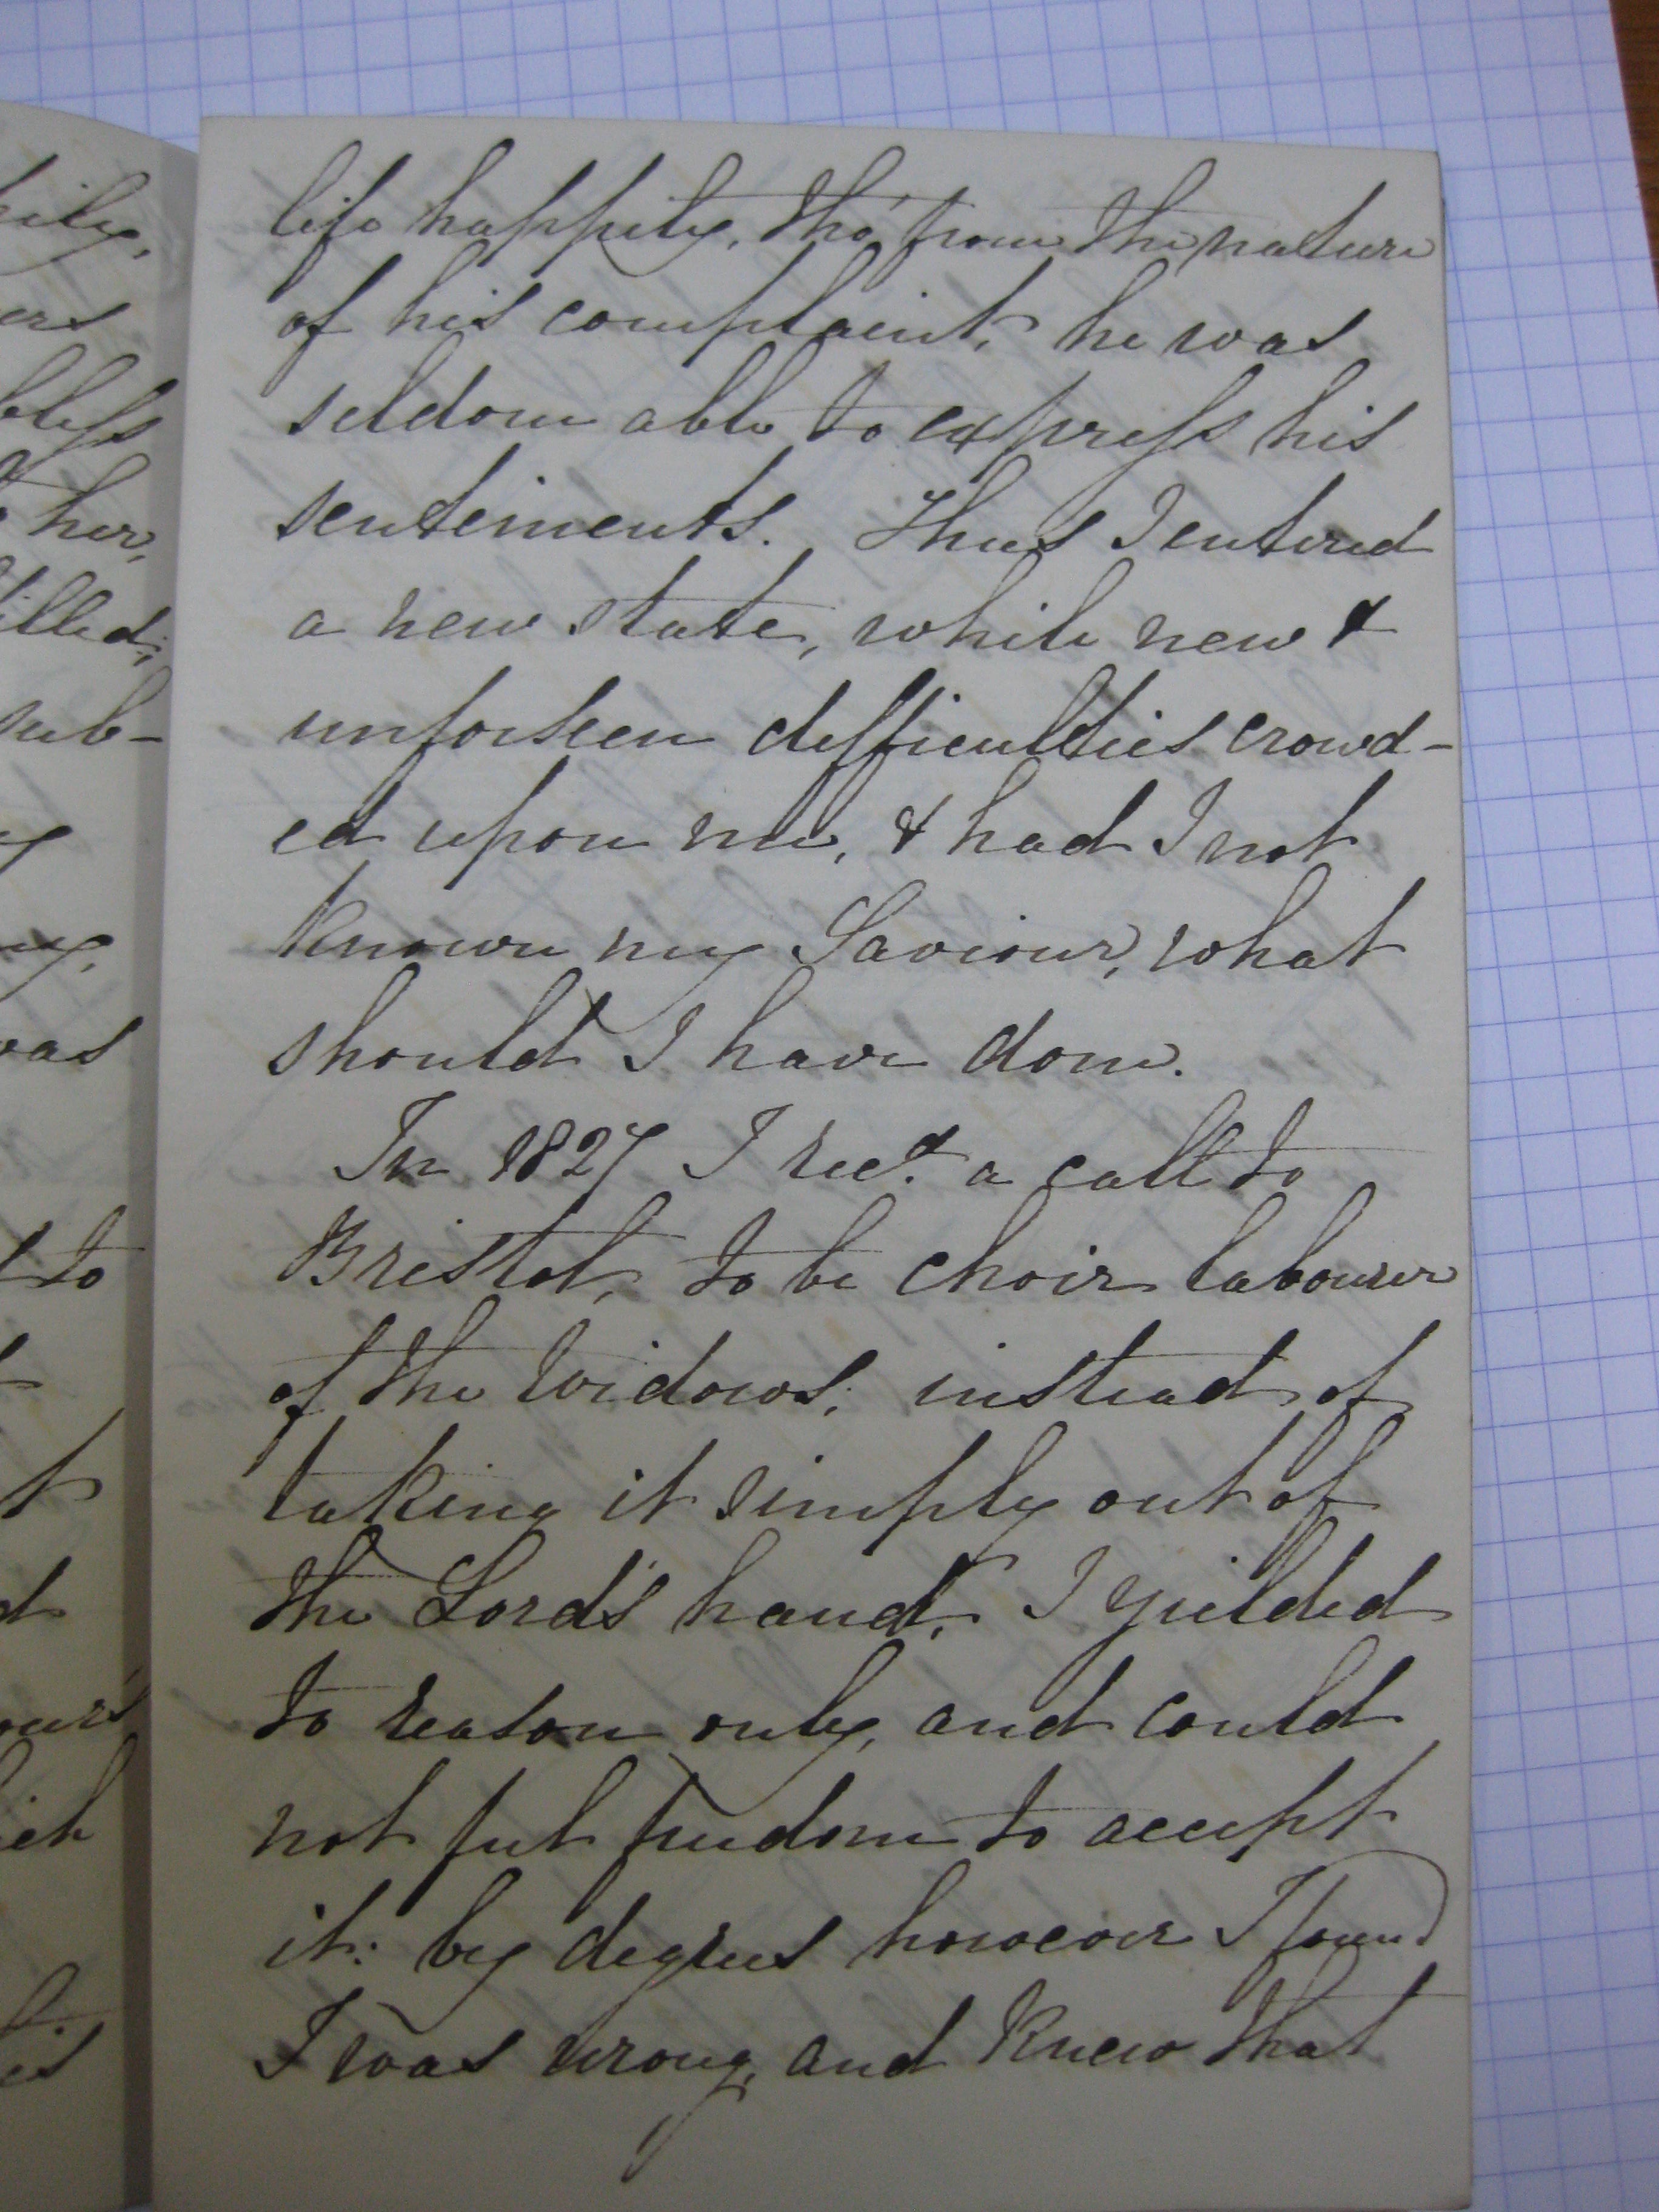 life happily, tho' from the nature
of his complaint, he was
seldom able to express his
sentiments. Thus I entered
a new state, while new &
unforseen difficulties crowd-
ed upon me, & had I not
known my Saviour, what
should I have done.
In 1827 I recd. a call to
Bristol, to be choir labourer
of the Widows; instead of
taking it simply out of
the Lord's hand, I yielded
to reason only, and could
not feel freedom to accept
it: by degrees however I found
I was wrong, and knew that